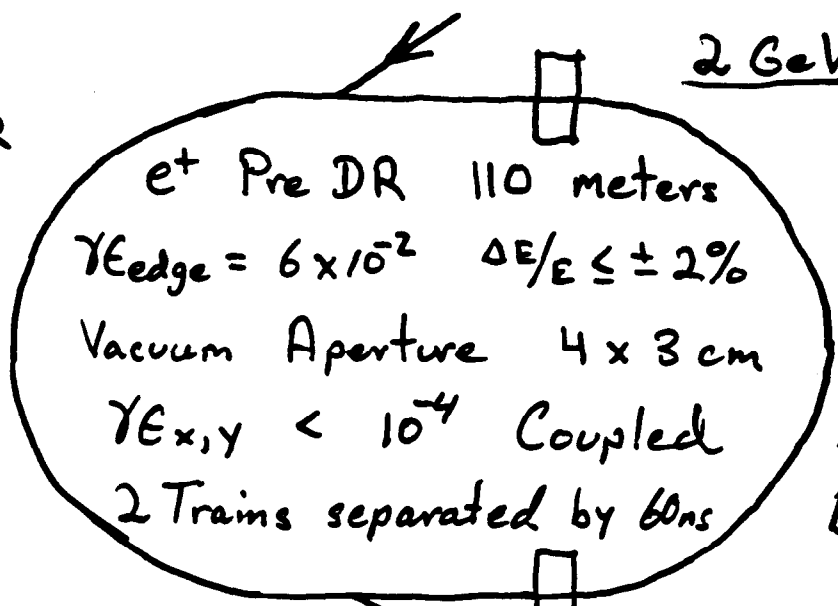 2 GeV
e⁺ Pre DR 110 meters
γϵedge = 6 x 10⁻² ΔE/E ≤ ± 2%
Vacuum Aperture 4 x 3 cm
γϵx,y < 10⁻⁴ Coupled
2 Trains separated by 60ns